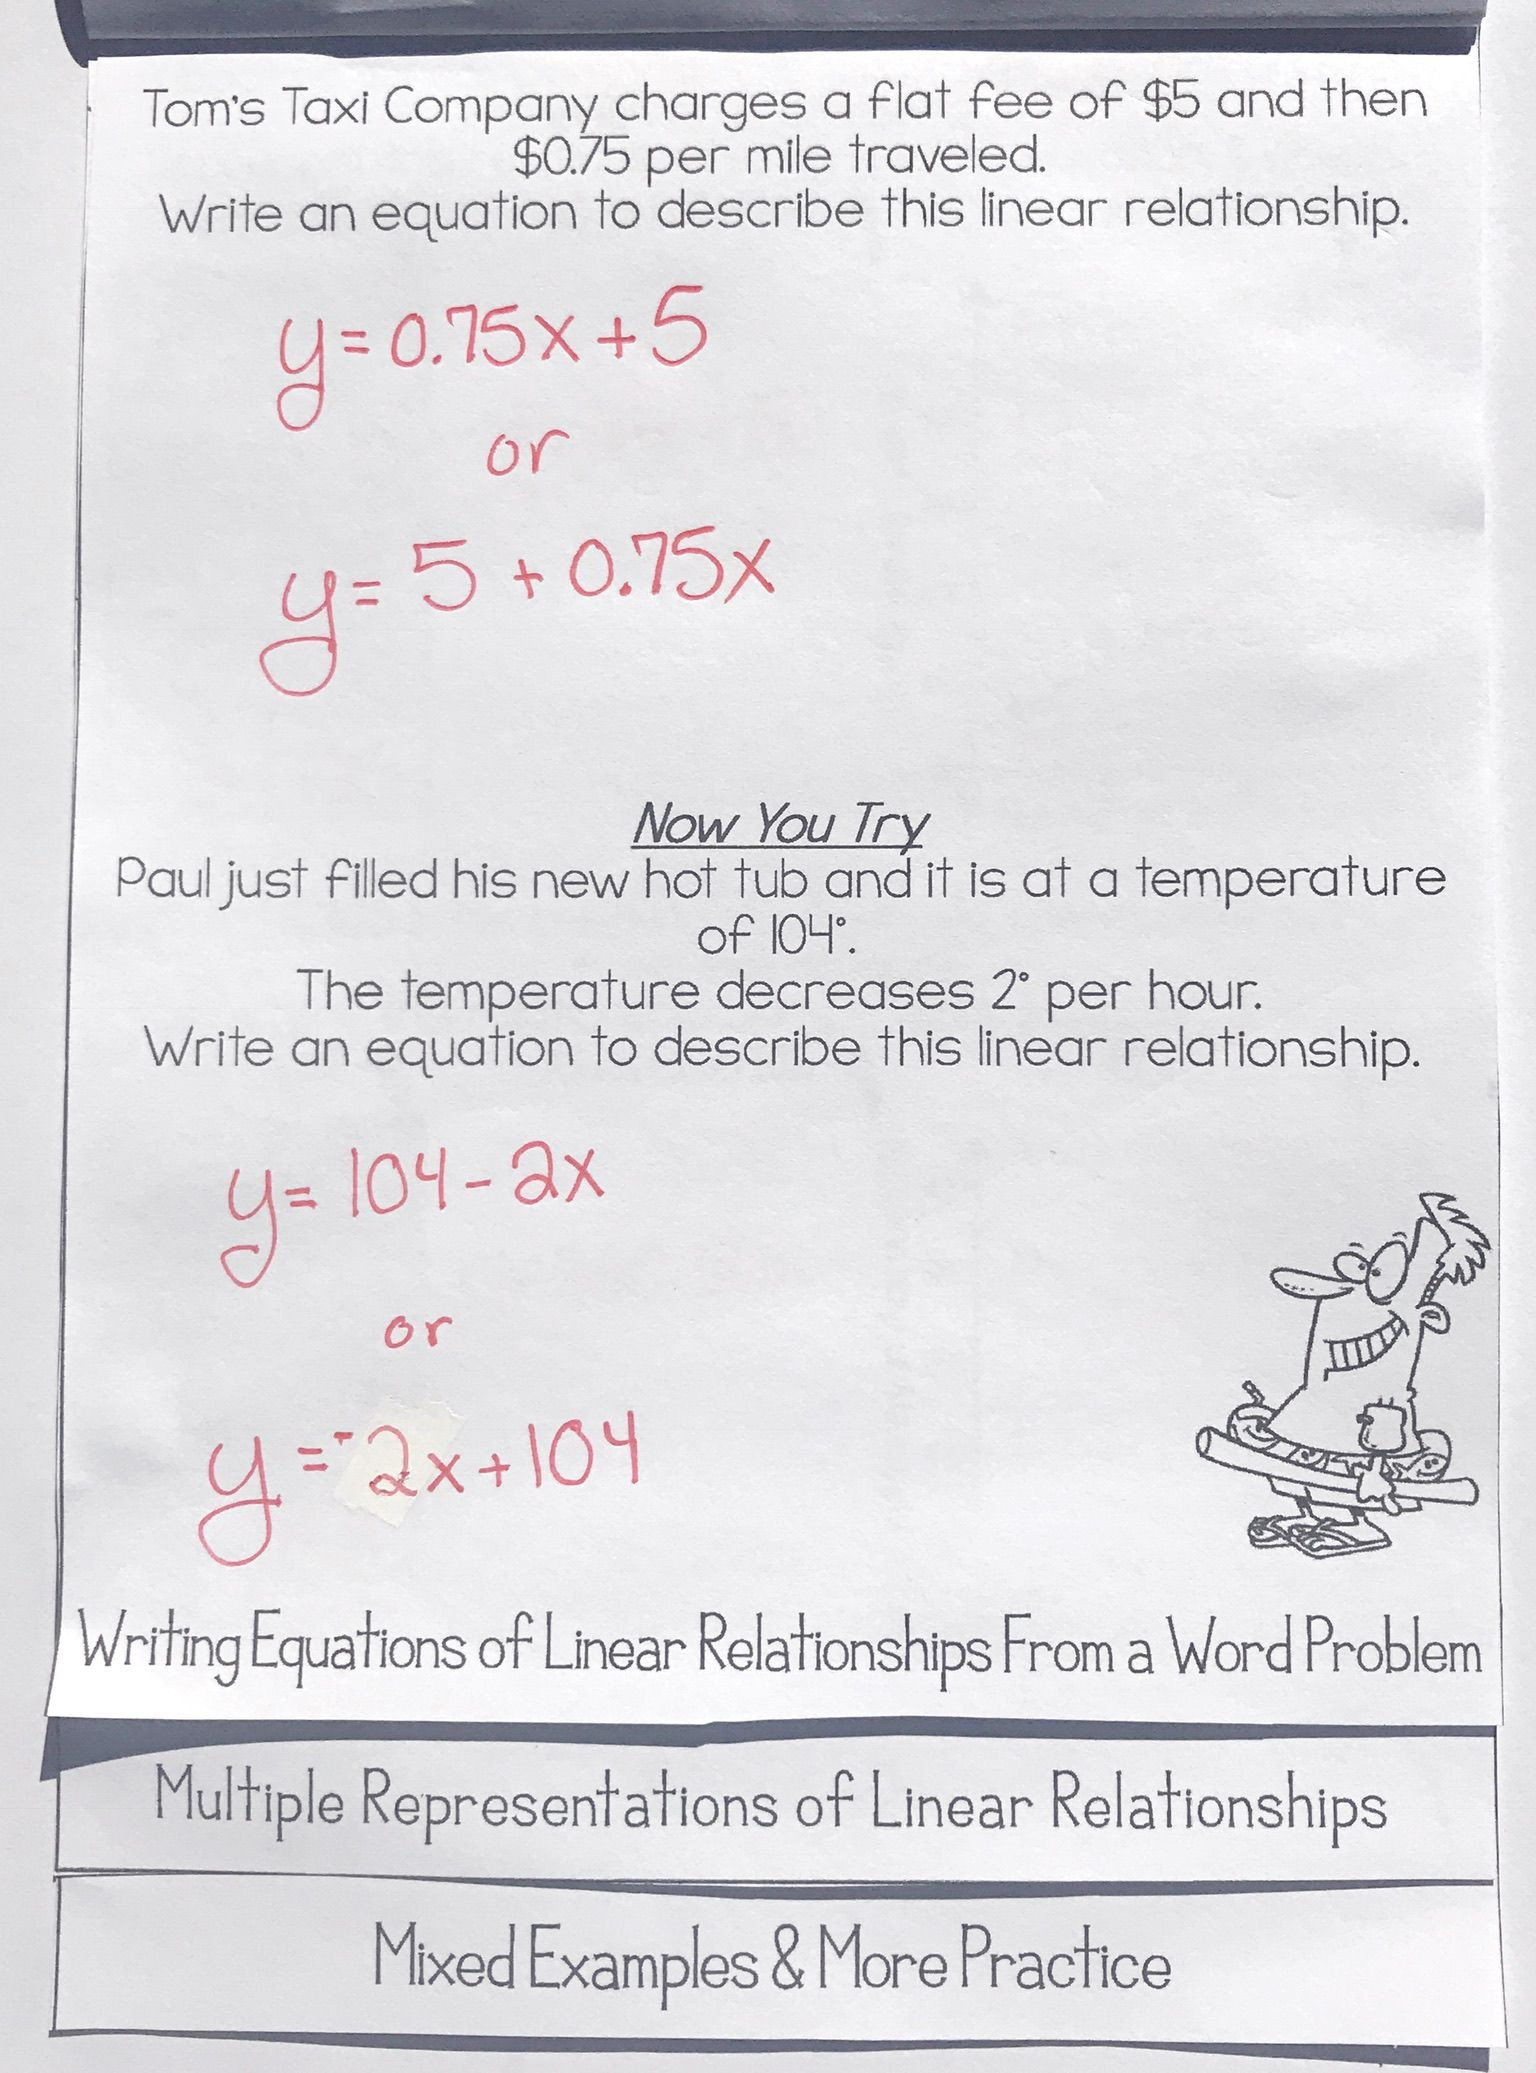 Tom's Taxi Company charges a flat fee of $5 and then
$0.75 per mile traveled.
Write an equation to describe this linear relationship.
y = 0.75x + 5
or
y = 5 + 0.75x
Now You Try
Paul just filled his new hot tub and it is at a temperature
of 104°.
The temperature decreases 2° per hour.
Write an equation to describe this linear relationship.
y = 104 - 2x
or
y = -2x + 104
Writing Equations of Linear Relationships From a Word Problem
Multiple Representations of Linear Relationships
Mixed Examples & More Practice